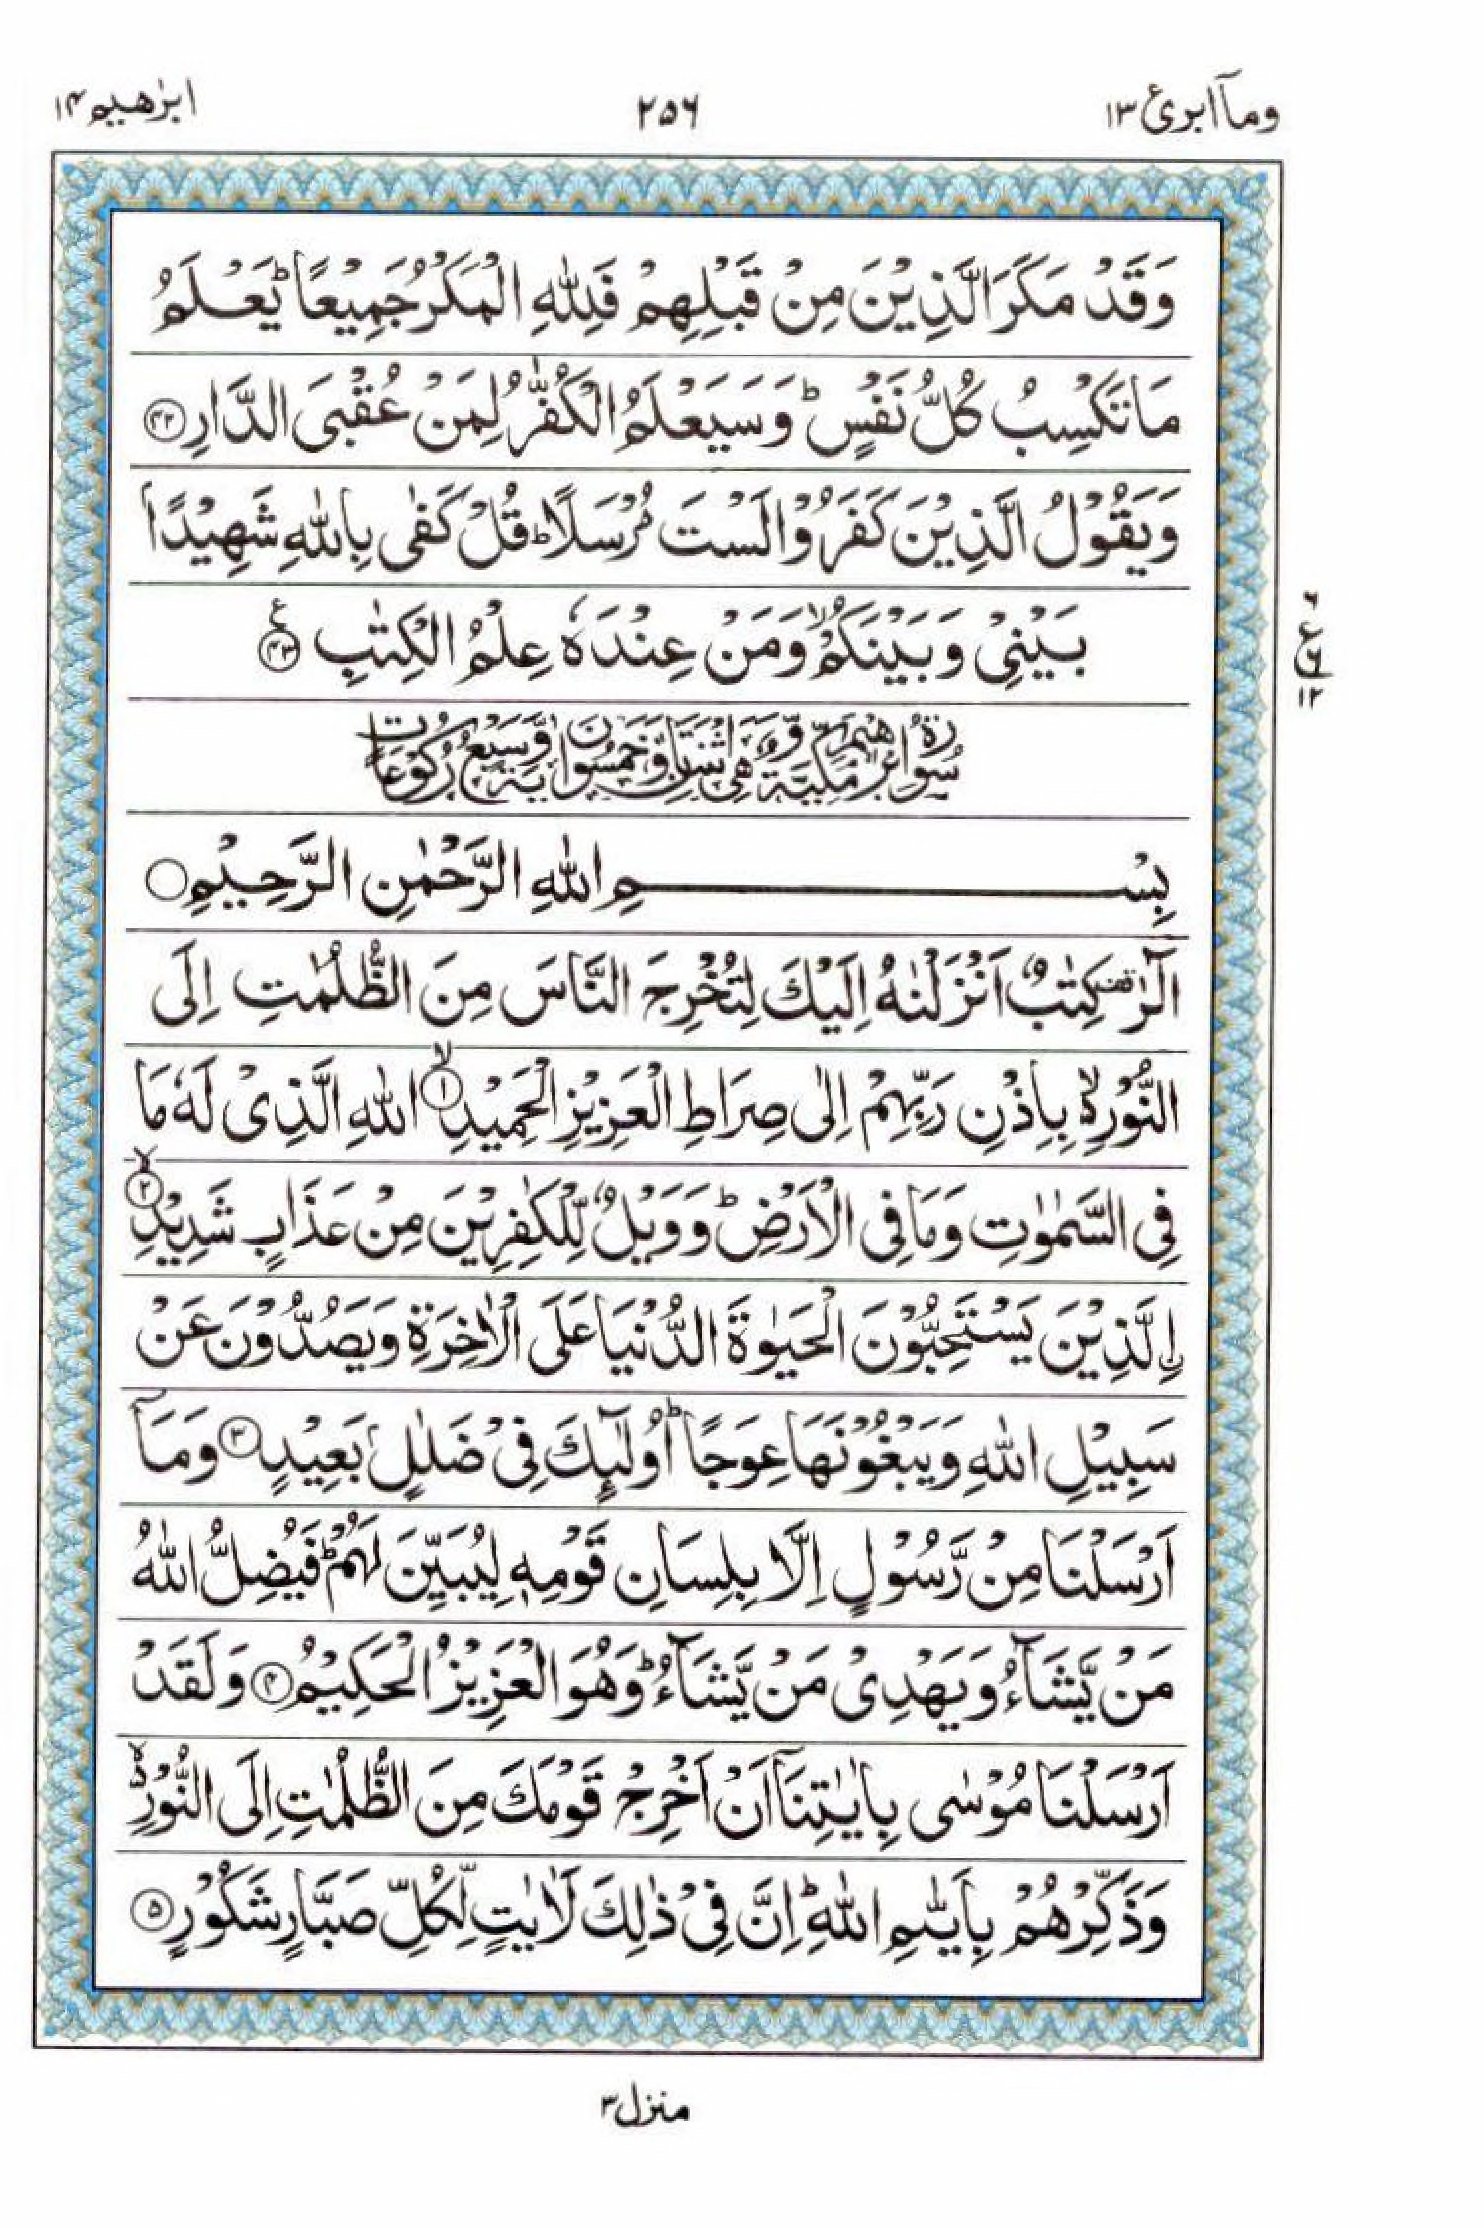 ابرٰهیم ۱۴ ۲۵۶ وماۤ ابرئ ۱۳
وَقَدْ مَكَرَ الَّذِيْنَ مِنْ قَبْلِهِمْ فَلِلّٰهِ الْمَكْرُ جَمِيْعًا ؕ يَعْلَمُ
مَا تَكْسِبُ كُلُّ نَفْسٍ ؕ وَسَيَعْلَمُ الْكُفّٰرُ لِمَنْ عُقْبَى الدَّارِ ۝۴۲
وَيَقُوْلُ الَّذِيْنَ كَفَرُوْا لَسْتَ مُرْسَلًا ؕ قُلْ كَفٰى بِاللّٰهِ شَهِيْدًۢا
بَيْنِيْ وَبَيْنَكُمْ ۙ وَمَنْ عِنْدَهٗ عِلْمُ الْكِتٰبِ ۝۴۳
ع ۶ ۱۲
سُوْرَةُ اِبْرٰهِيْمَ مَكِّيَّةٌ وَّهِيَ اثْنَتَانِ وَّخَمْسُوْنَ اٰيَةً وَّسَبْعُ رُكُوْعَاتٍ
بِسْمِ اللّٰهِ الرَّحْمٰنِ الرَّحِيْمِ ۝
الٓرٰ ۟ كِتٰبٌ اَنْزَلْنٰهُ اِلَيْكَ لِتُخْرِجَ النَّاسَ مِنَ الظُّلُمٰتِ اِلَى
النُّوْرِ ۙ۬ بِاِذْنِ رَبِّهِمْ اِلٰى صِرَاطِ الْعَزِيْزِ الْحَمِيْدِ ۙ۝۱ اللّٰهِ الَّذِيْ لَهٗ مَا
فِي السَّمٰوٰتِ وَمَا فِي الْاَرْضِ ؕ وَوَيْلٌ لِّلْكٰفِرِيْنَ مِنْ عَذَابٍ شَدِيْدِ ۙ۝۲
ۨالَّذِيْنَ يَسْتَحِبُّوْنَ الْحَيٰوةَ الدُّنْيَا عَلَى الْاٰخِرَةِ وَيَصُدُّوْنَ عَنْ
سَبِيْلِ اللّٰهِ وَيَبْغُوْنَهَا عِوَجًا ؕ اُولٰٓئِكَ فِيْ ضَلٰلٍۭ بَعِيْدٍ ۝۳ وَمَاۤ
اَرْسَلْنَا مِنْ رَّسُوْلٍ اِلَّا بِلِسَانِ قَوْمِهٖ لِيُبَيِّنَ لَهُمْ ؕ فَيُضِلُّ اللّٰهُ
مَنْ يَّشَآءُ وَيَهْدِيْ مَنْ يَّشَآءُ ؕ وَهُوَ الْعَزِيْزُ الْحَكِيْمُ ۝۴ وَلَقَدْ
اَرْسَلْنَا مُوْسٰى بِاٰيٰتِنَاۤ اَنْ اَخْرِجْ قَوْمَكَ مِنَ الظُّلُمٰتِ اِلَى النُّوْرِ ۙ۬
وَذَكِّرْهُمْ بِاَيّٰىمِ اللّٰهِ ؕ اِنَّ فِيْ ذٰلِكَ لَاٰيٰتٍ لِّكُلِّ صَبَّارٍ شَكُوْرٍ ۝۵
منزل ۳